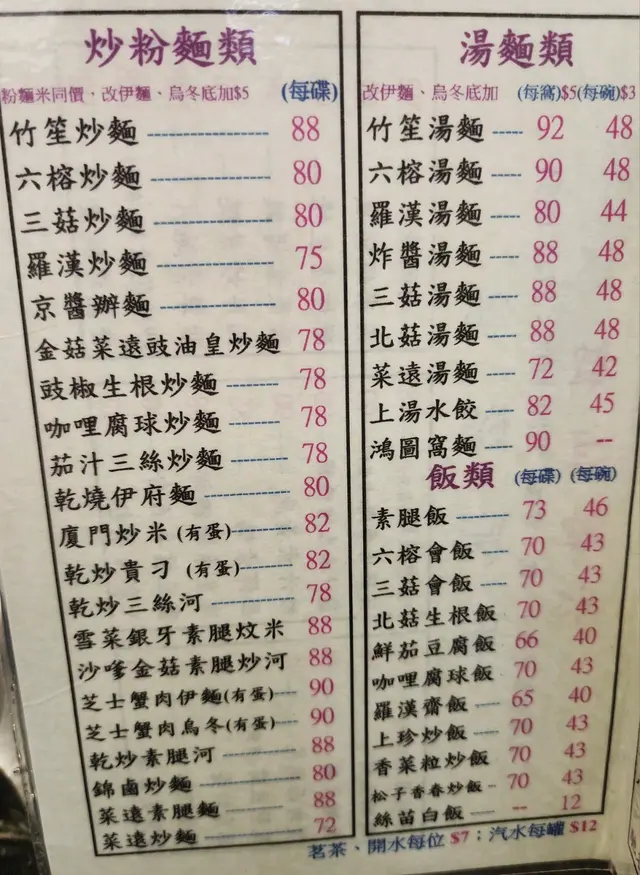 炒粉麵類
粉麵米同價，改伊麵、烏冬底加$5 (每碟)
竹笙炒麵 88
六榕炒麵 80
三菇炒麵 80
羅漢炒麵 75
京醬辦麵 80
金菇菜遠豉油皇炒麵 78
豉椒生根炒麵 78
咖哩腐球炒麵 78
茄汁三絲炒麵 78
乾燒伊府麵 80
廈門炒米 (有蛋) 82
乾炒貴刁 (有蛋) 82
乾炒三絲河 78
雪菜銀牙素腿炆米 88
沙嗲金菇素腿炒河 88
芝士蟹肉伊麵(有蛋) 90
芝士蟹肉烏冬(有蛋) 90
乾炒素腿河 88
錦鹵炒麵 80
菜遠素腿麵 88
菜遠炒麵 72
湯麵類
改伊麵、烏冬底加 (每窩)$5(每碗)$3
竹笙湯麵 92 48
六榕湯麵 90 48
羅漢湯麵 80 44
炸醬湯麵 88 48
三菇湯麵 88 48
北菇湯麵 88 48
菜遠湯麵 72 42
上湯水餃 82 45
鴻圖窩麵 90 --
飯類 (每碟) (每碗)
素腿飯 73 46
六榕會飯 70 43
三菇會飯 70 43
北菇生根飯 70 43
鮮茄豆腐飯 66 40
咖哩腐球飯 70 43
羅漢齋飯 65 40
上珍炒飯 70 43
香菜粒炒飯 70 43
松子香春炒飯 70 43
絲苗白飯 -- 12
茗茶、開水每位 $7；汽水每罐 $12